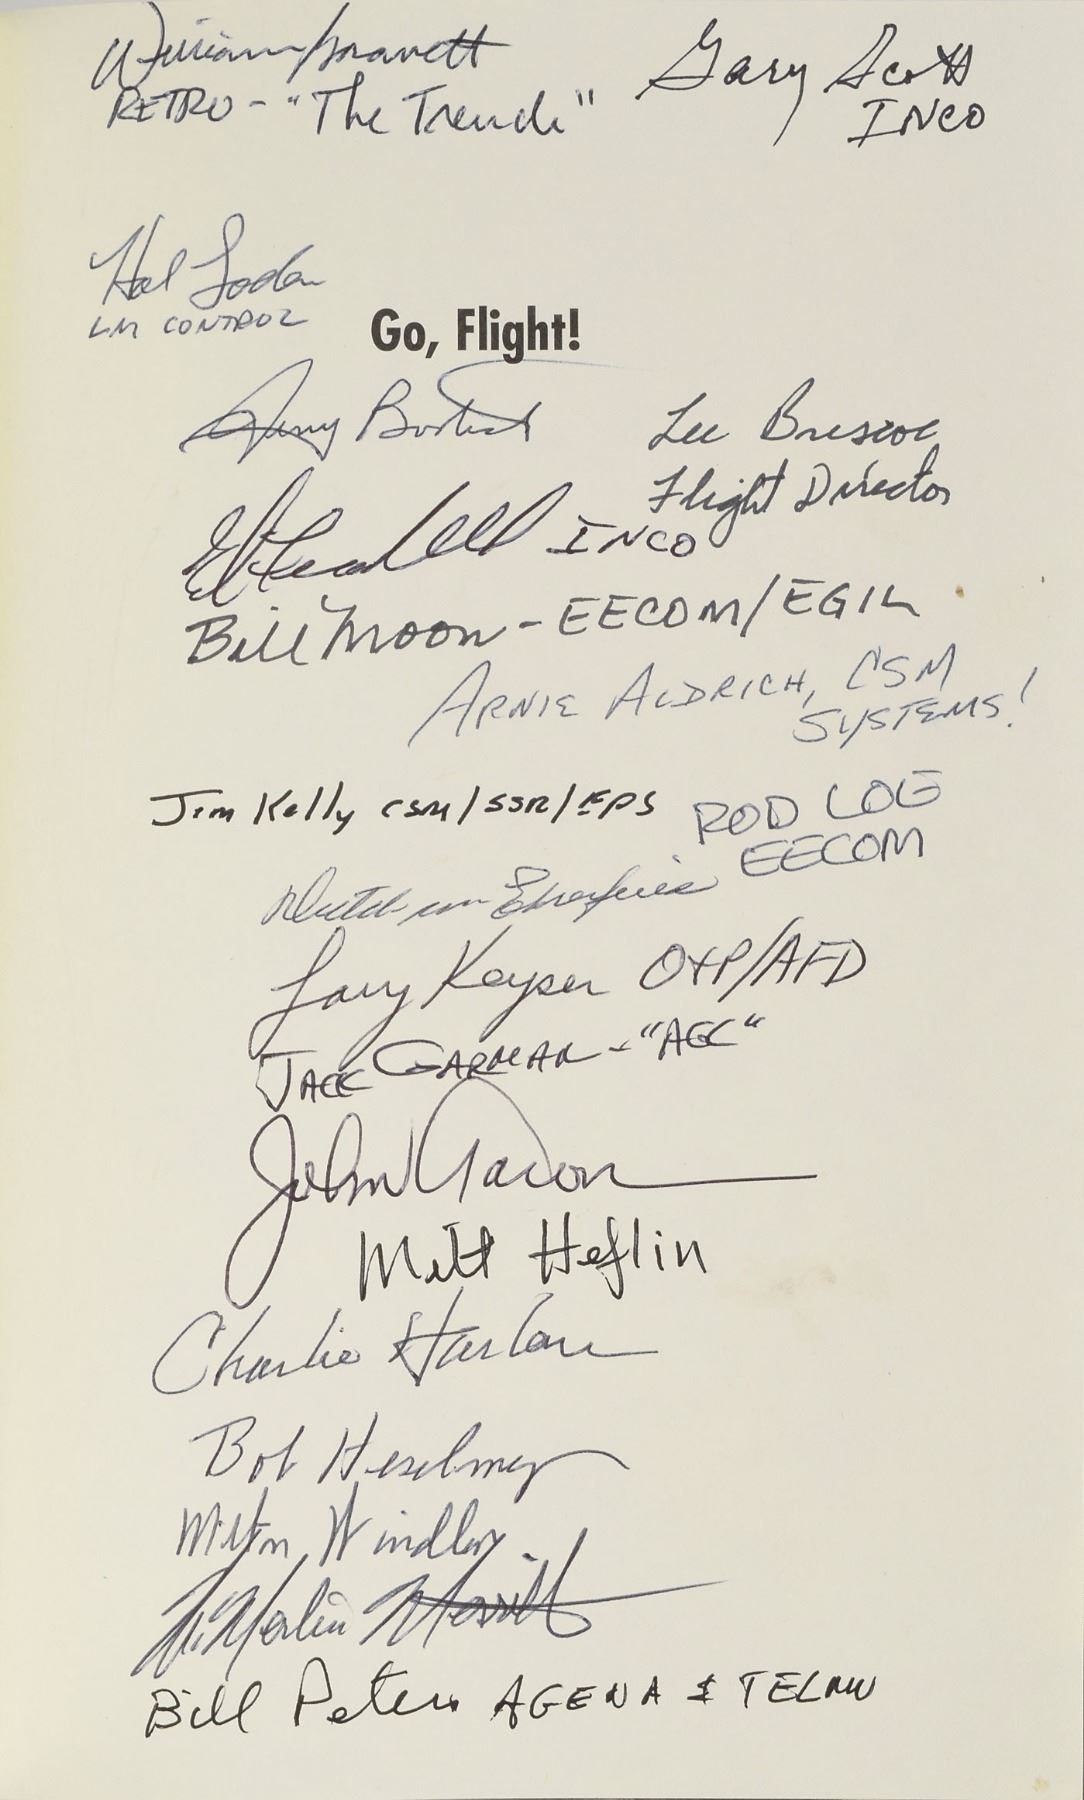 William Gravett
RETRO - "The Trench"
Gary Scott
INCO
Hal Loden
LM CONTROL
Go, Flight!
Jerry Bostick
Lee Briscoe
Flight Director
INCO
Bill Moon - EECOM/EGIL
ARNIE ALDRICH, CSM
SYSTEMS!
Jim Kelly CSM/SSR/EPS
ROD LOE
EECOM
Dutch von Ehrenfried
Larry Keyser O&P/AFD
JACK GARMAN - "AGC"
John Aaron
Milt Heflin
Charlie Harlan
Bob Heselmeyer
Milton Windler
Merlin Merritt
Bill Peters AGENA & TELMU